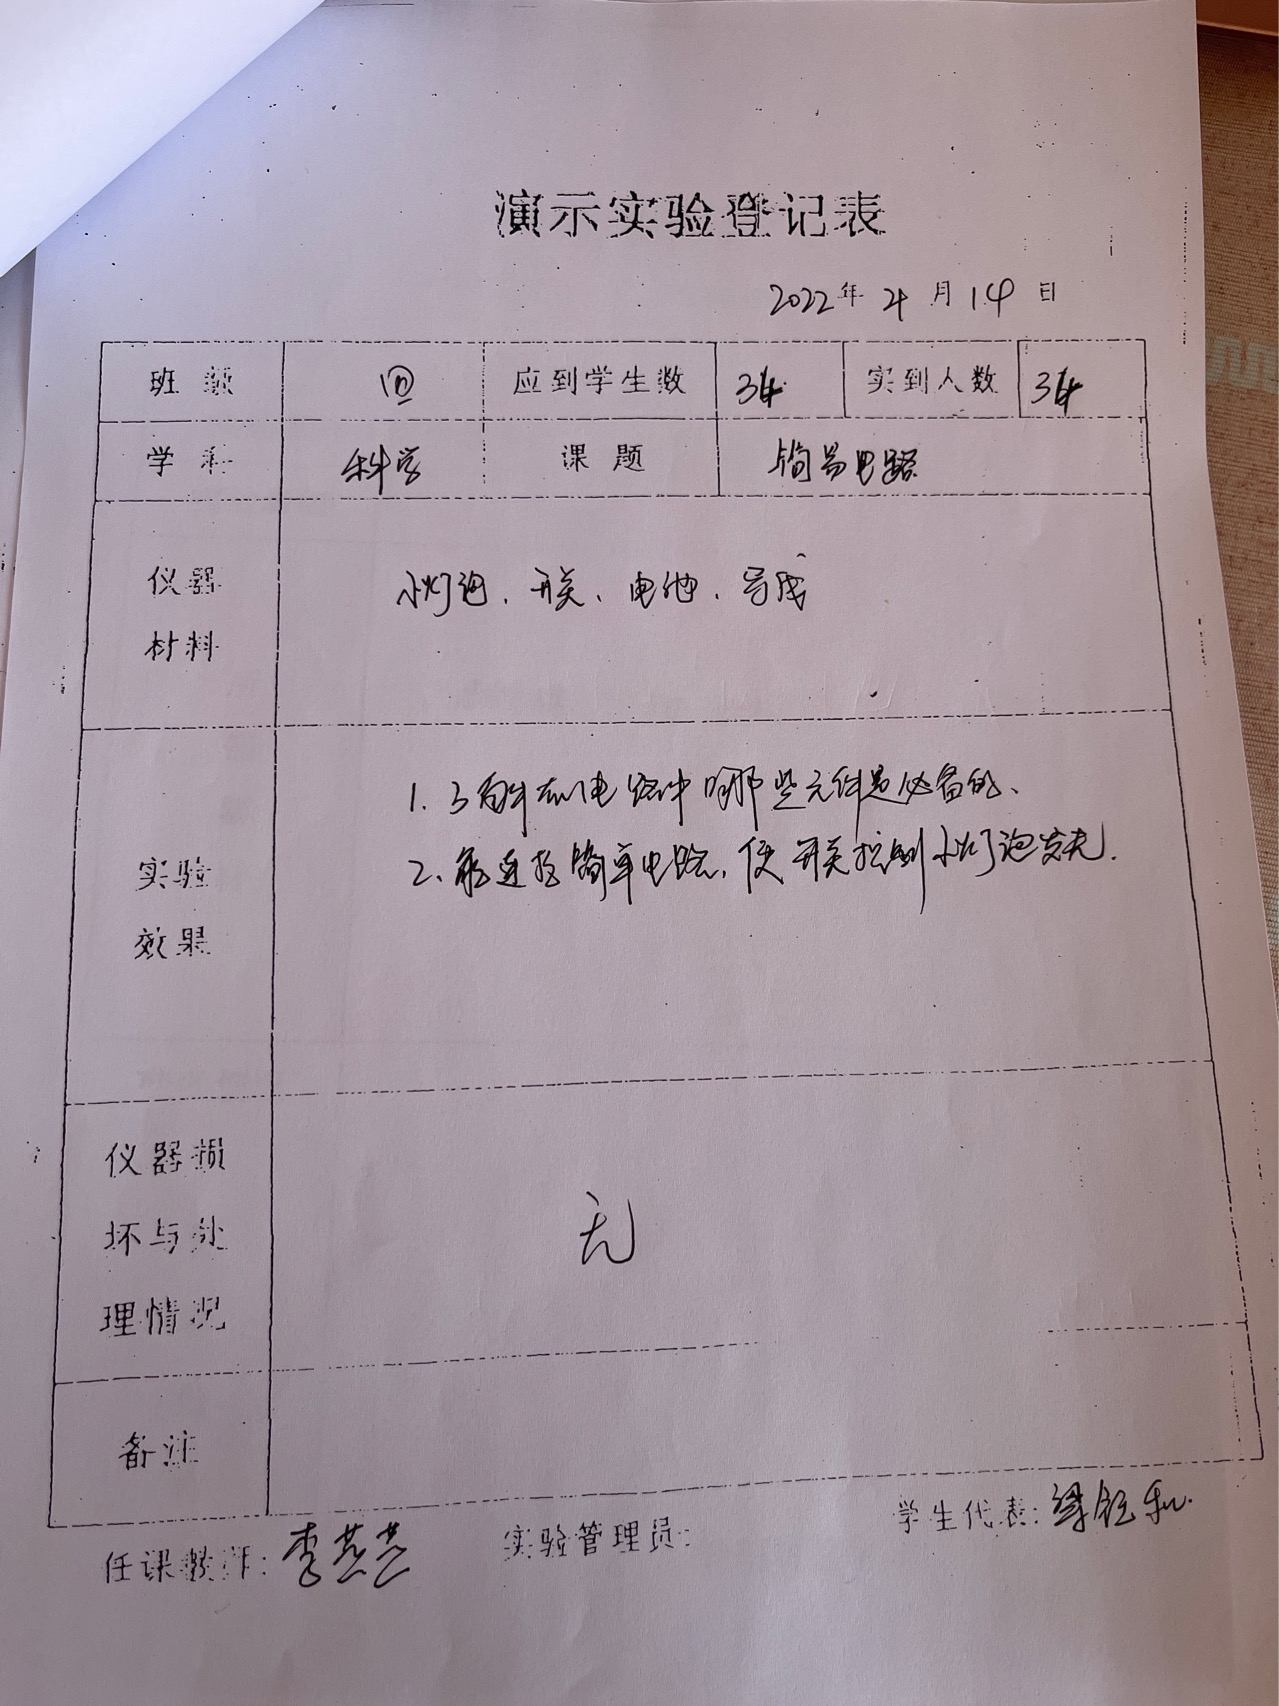 演示实验登记表
2022年 4月 14日
班级 四 应到学生数 34 实到人数 34
学科 科学 课题 简易电路
仪器
材料
小灯泡、开关、电池、导线
实验
效果
1. 了解在电路中哪些元件是必备的、
2、能连接简单电路,使开关控制小灯泡发光.
仪器损
坏与处
理情况
无
备注
任课教师:李燕燕 实验管理员: 学生代表: